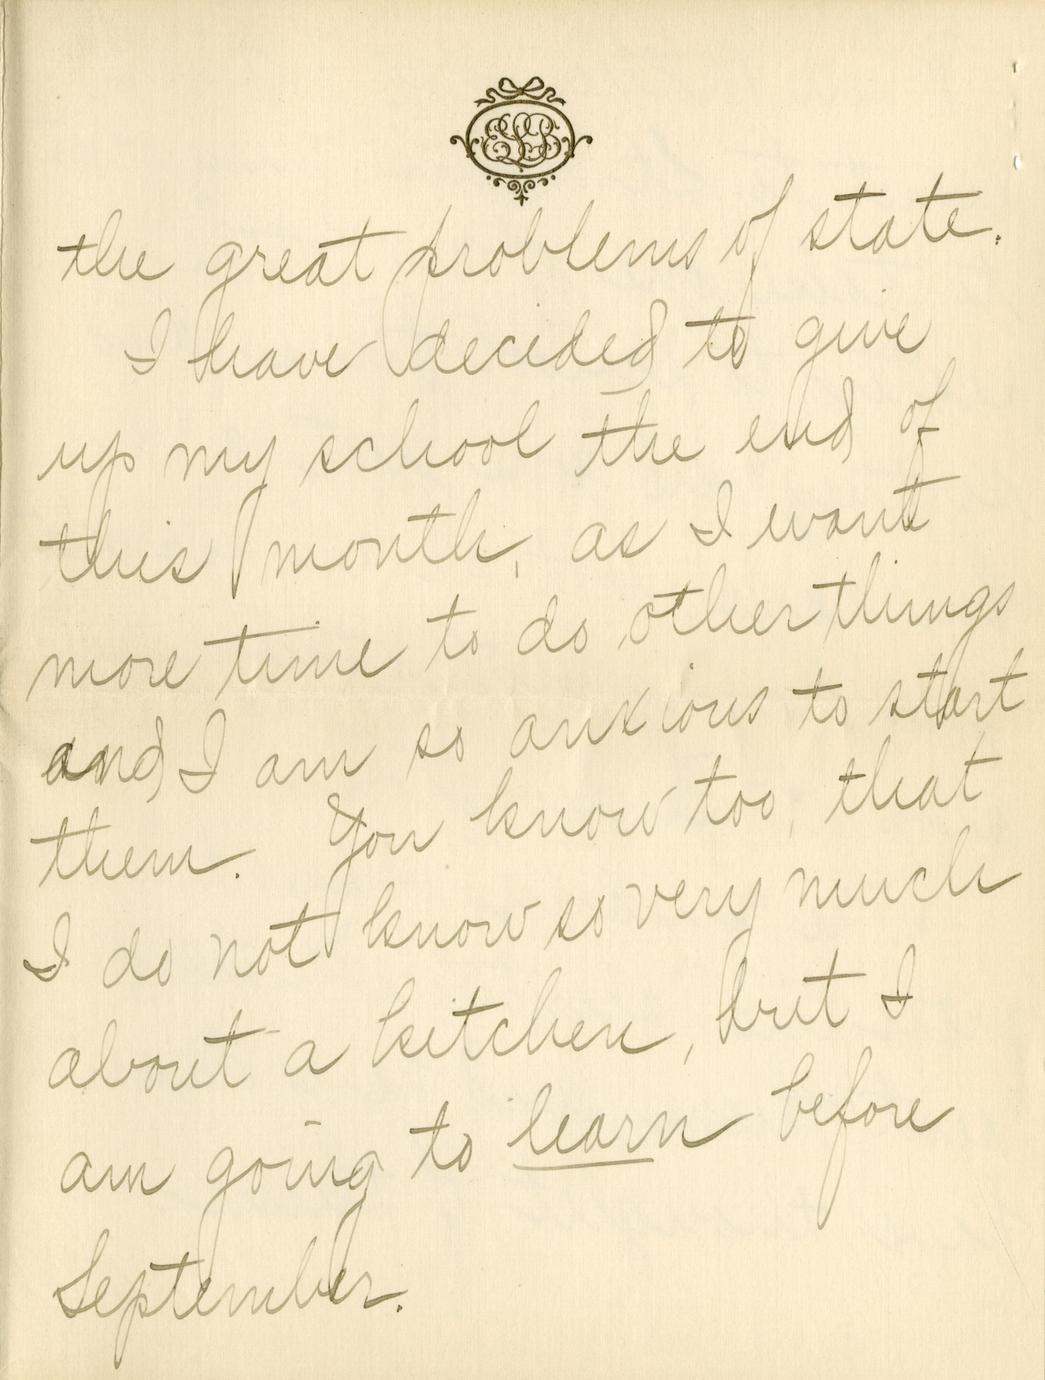 ELB
the great problems of state.
I have decided to give
up my school the end of
this month, as I want
more time to do other things
and I am so anxious to start
them. You know too, that
I do not know so very much
about a kitchen, but I
am going to learn before
September.